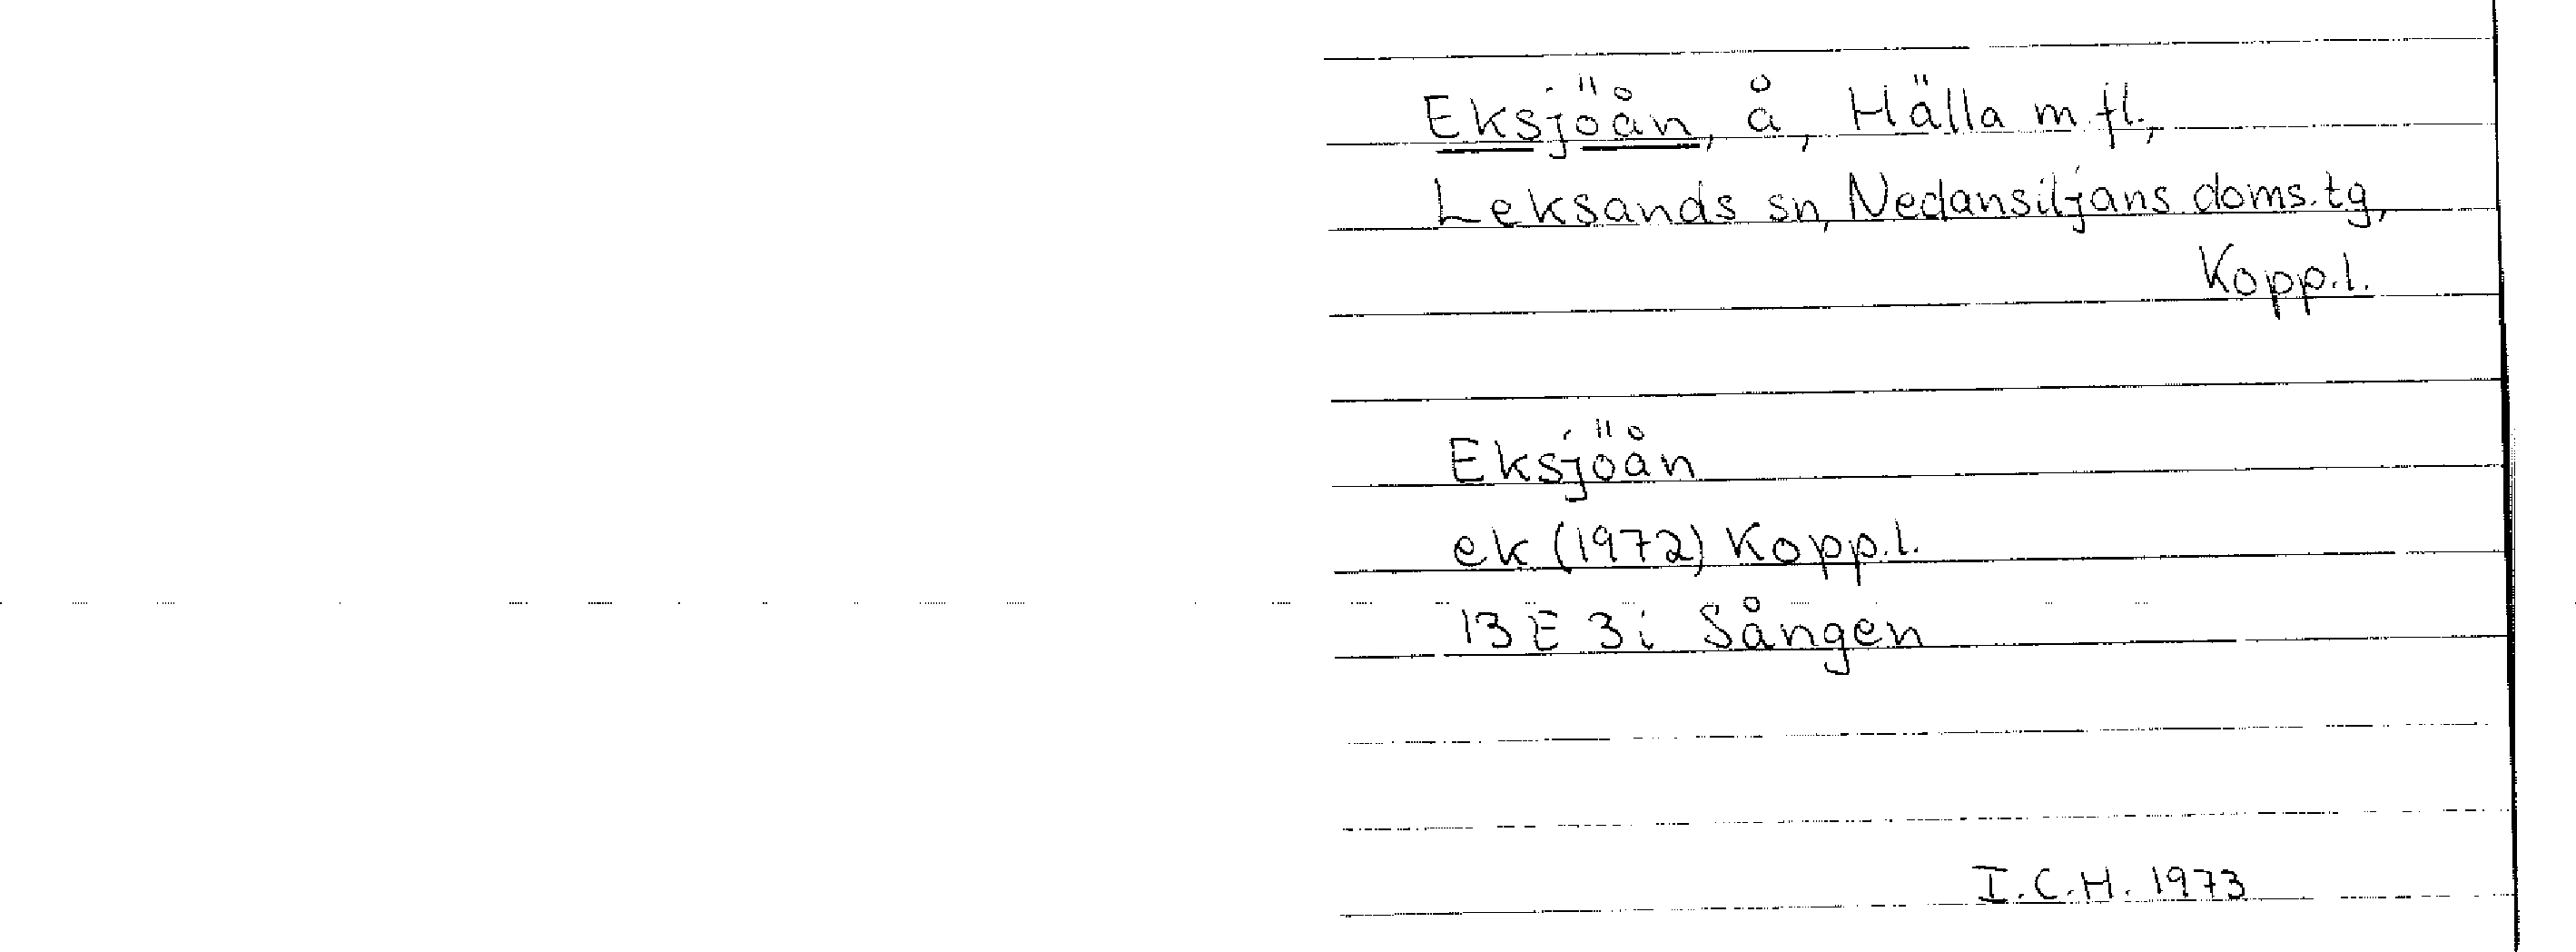 Eksjöån, å, Hälla m.fl.,
Leksands sn, Nedansiljans doms.tg,
Kopp.l.
Eksjöån
ek (1972) Kopp.l.
13E 3i Sången
I.C.H. 1973